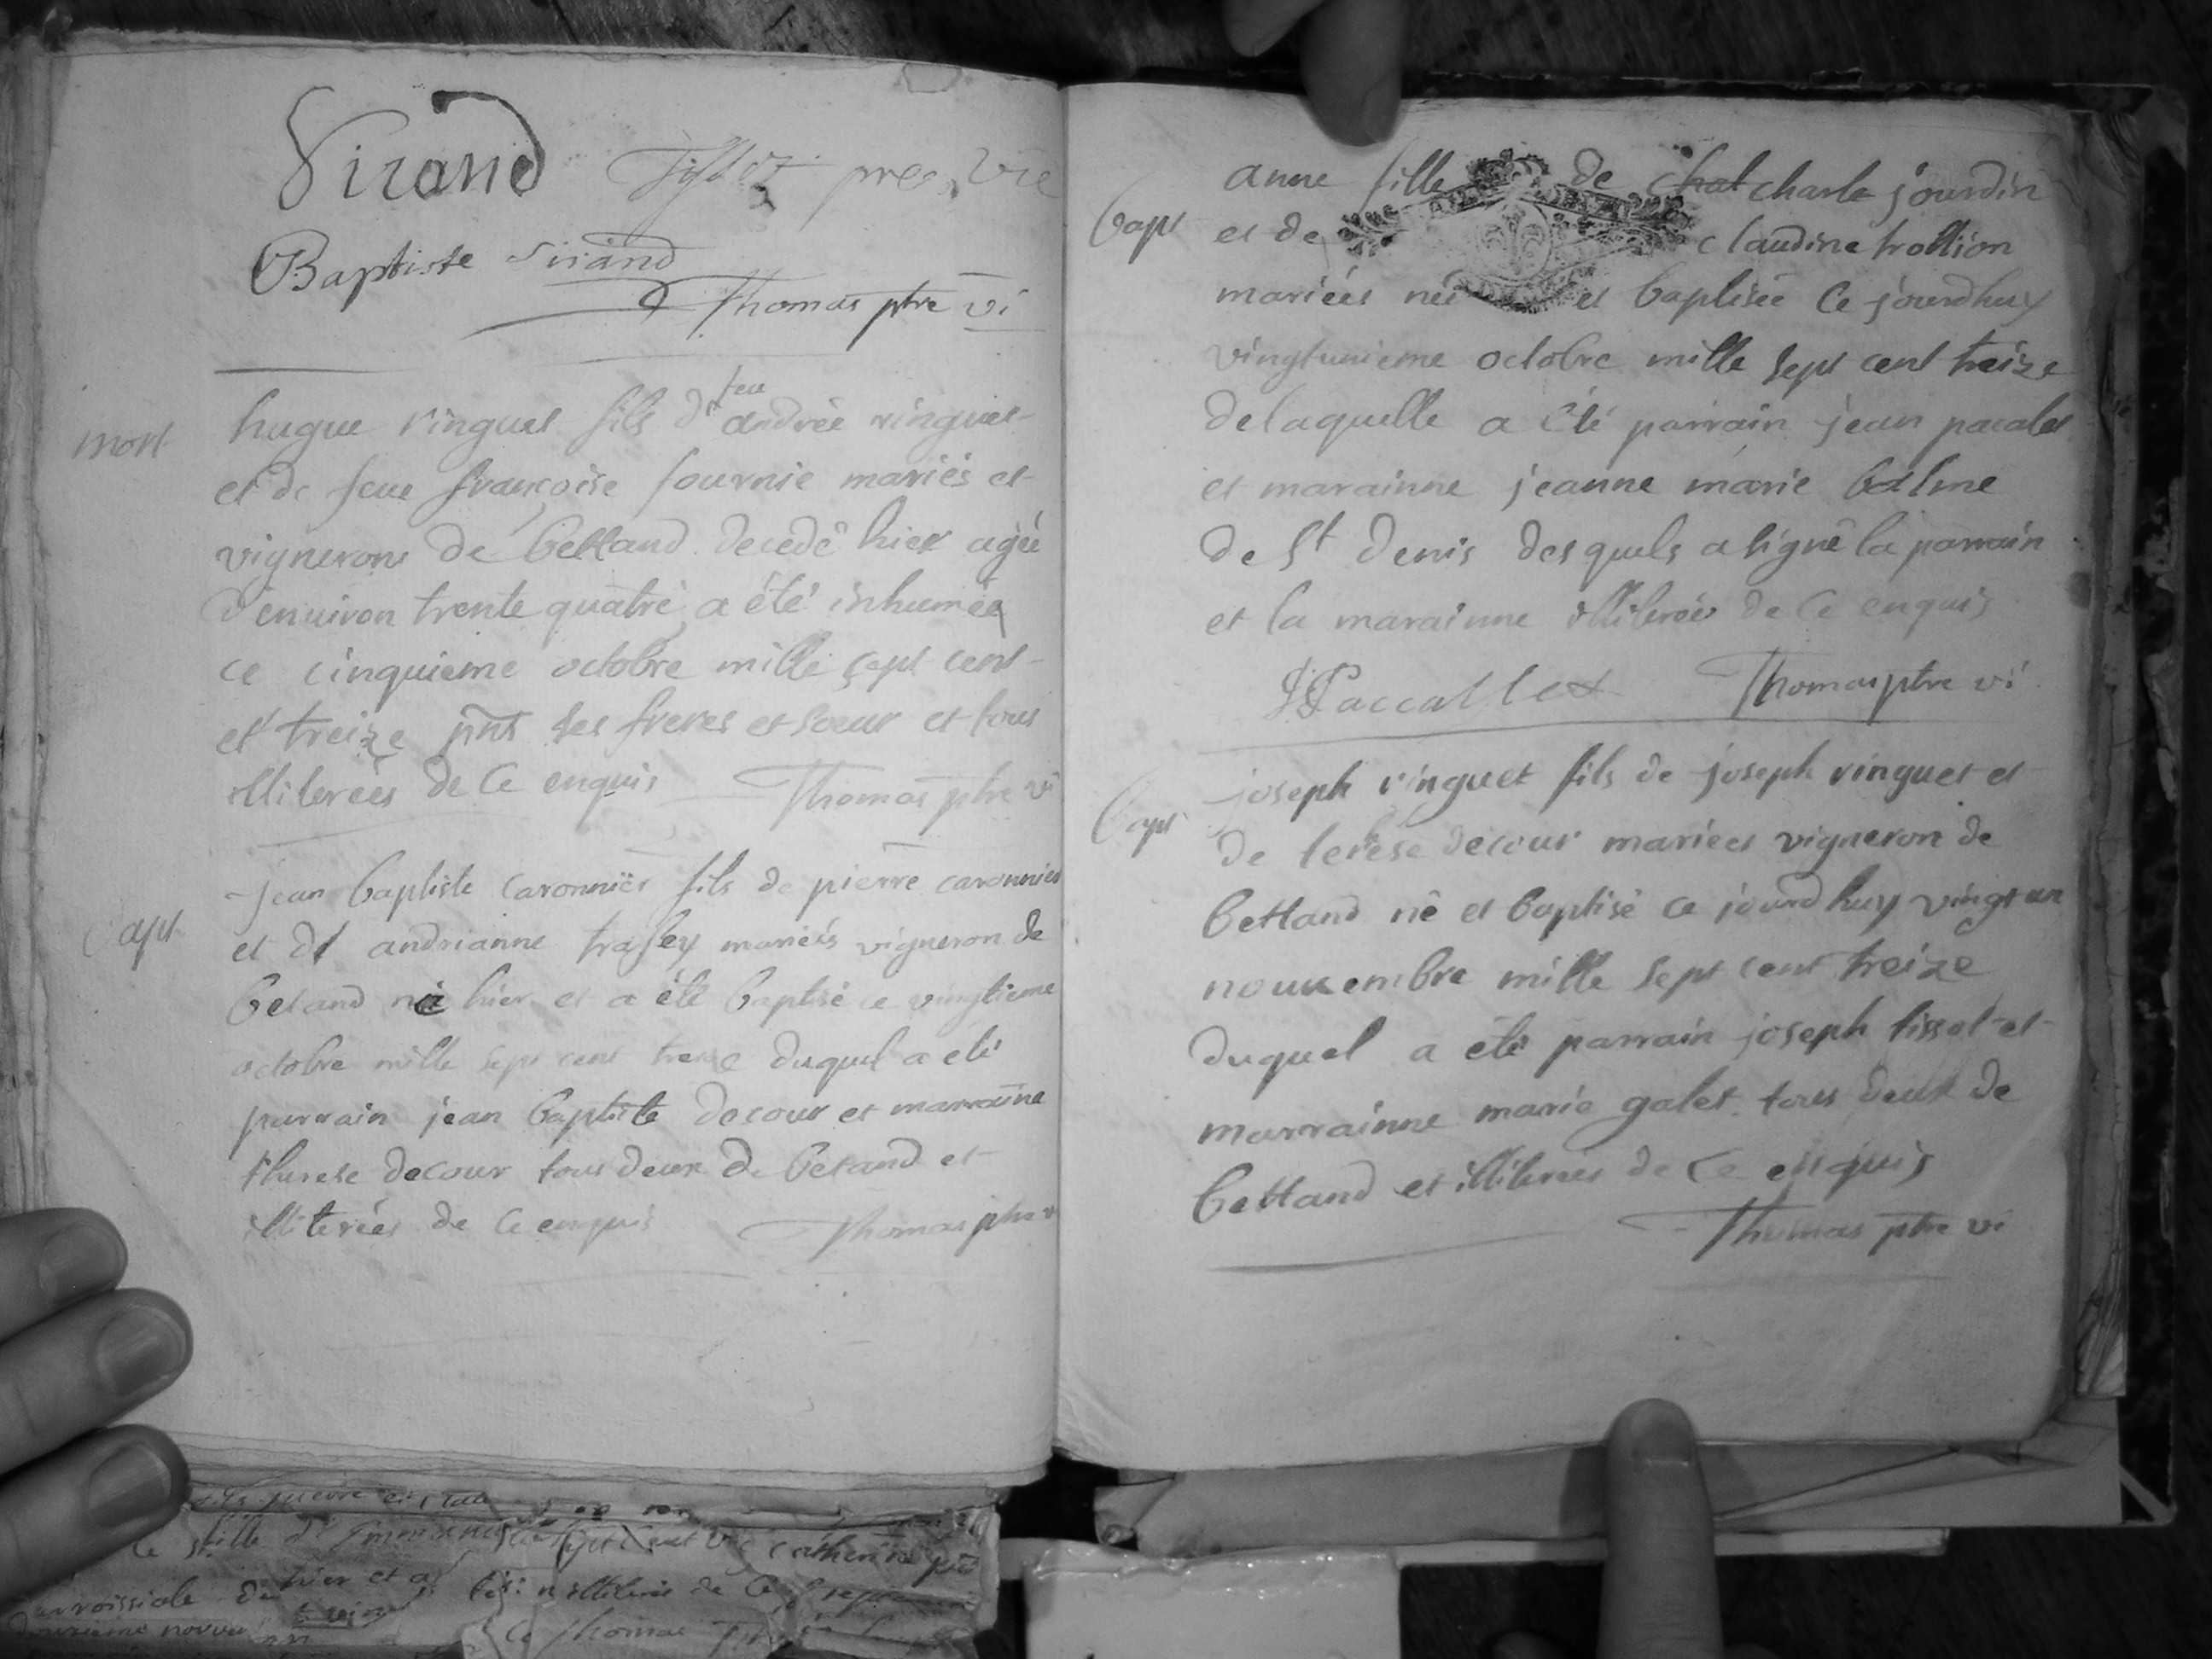 Sirand
Baptiste Sirand
Thomas ptre vi
mort
hugue ringuet fils d' feu andrée ringuet
et de feue françoise fournie mariés et
vignerons de bettand decedé hier agée
d'enuiron trente quatre a été inhumée
ce cinquieme octobre mille sept cent
et treize pnts ses freres et soeur et tous
illiterées de ce enquis Thomas ptre vi
bapt
jean baptiste caronnier fils de pierre caronnier
et de andrianne trafey mariés vigneron de
betand né hier et a été baptisé ce vingtieme
octobre mille sept cent treize duquel a été
parrain jean baptiste decour et marraine
therese decour tous deux de betand et
illiterées de ce enquis Thomas ptre v
bapt
anne fille de chal charle jourdin
et de claudine trollion
mariées née et baptisée ce jourdhuy
vingtunieme octobre mille sept cent treize
delaquelle a été parrain jean pacalet
et marainne jeanne marie balme
de st denis desquels a signé la parrain
et la marainne illiterée de ce enquis
JPaccallet Thomas ptre vi
bapt
joseph ringuet fils de joseph ringuet et
de terese decour mariées vigneron de
bettand né et baptisé ce jourdhuy vingt un
nouuembre mille sept cent treize
duquel a été parrain joseph tissot et
marrainne marie galet tous deux de
bettand et illiterées de ce enquis
Thomas ptre vi